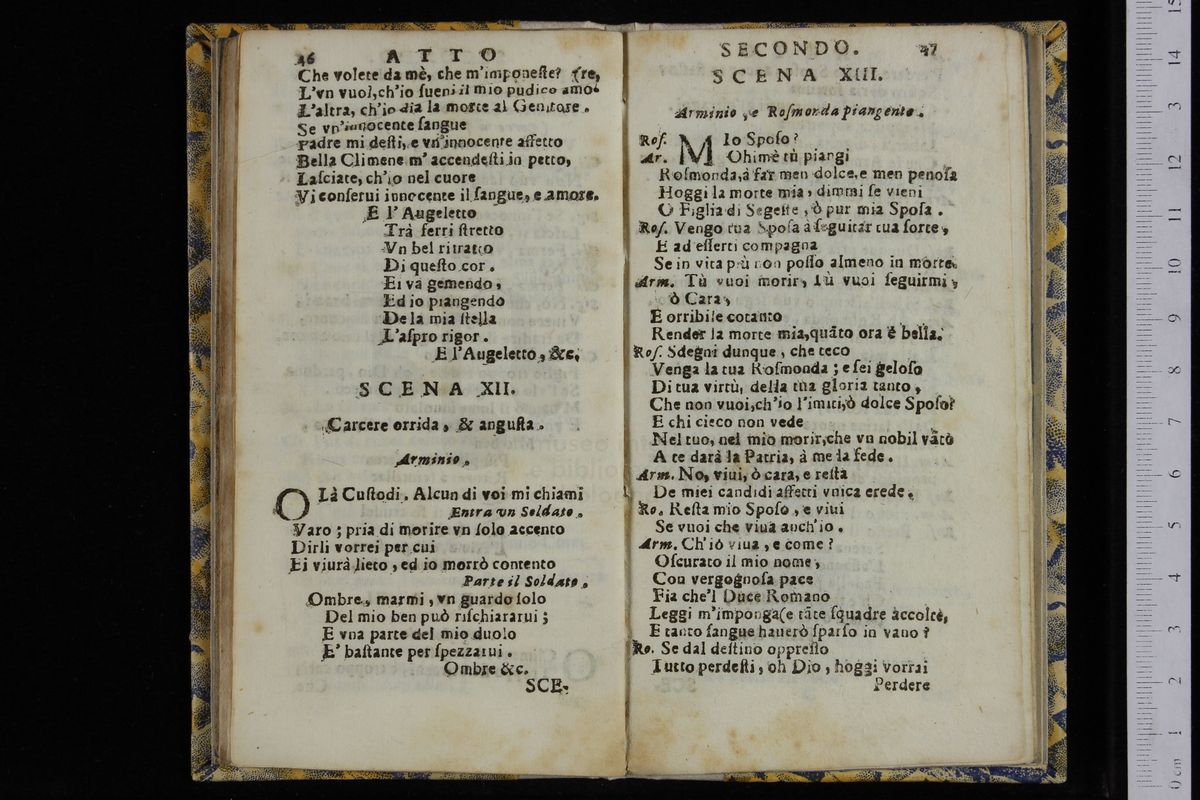 46 ATTO
Che volete da mè, che m'imponeſte? (re,
L'vn vuol,ch'io ſueni il mio pudico amo-
L'altra, ch'io dia la morte al Genitore.
Se vn'innocente ſangue
Padre mi deſti, e vn'innocente affetto
Bella Climene m'accendeſti in petto,
Laſciate, ch'io nel cuore
Vi conſerui innocente il ſangue, e amore.
E l'Augeletto
Trà ferri ſtretto
Vn bel ritratto
Di queſto cor.
Ei và gemendo,
Ed io piangendo
De la mia ſtella
L'aſpro rigor.
E l'Augeletto, &c.
SCENA XII.
Carcere orrida, & anguſta.
Arminio.
OLà Cuſtodi. Alcun di voi mi chiami
Entra vn Soldato.
Varo; pria di morire vn ſolo accento
Dirli vorrei per cui
Ei viurà lieto, ed io morrò contento
Parte il Soldato.
Ombre, marmi, vn guardo ſolo
Del mio ben può riſchiararui;
E vna parte del mio duolo
E' baſtante per ſpezzarui.
Ombre &c.
SCE-
SECONDO. 47
SCENA XIII.
Arminio, e Roſmonda piangente.
Roſ. MIo Spoſo?
Ar. Ohimè tù piangi
Roſmonda,à far men dolce,e men penoſa
Hoggi la morte mia, dimmi ſe vieni
O Figlia di Segeſte, ò pur mia Spoſa.
Roſ. Vengo tua Spoſa à ſeguitar tua ſorte,
E ad eſſerti compagna
Se in vita più non poſſo almeno in morte.
Arm. Tù vuoi morir, Tù vuoi ſeguirmi,
ò Cara,
E orribile cotanto
Render la morte mia,quãto ora è bella.
Roſ. Sdegni dunque, che teco
Venga la tua Roſmonda; e ſei geloſo
Di tua virtù, della tua gloria tanto,
Che non vuoi,ch'io l'imiti,ò dolce Spoſo?
E chi cieco non vede
Nel tuo, nel mio morir,che vn nobil vãto
A te darà la Patria, à me la fede.
Arm. No, viui, ò cara, e reſta
De miei candidi affetti vnica erede.
Ro. Reſta mio Spoſo, e viui
Se vuoi che viua anch'io.
Arm. Ch'iò viua, e come?
Oſcurato il mio nome,
Con vergognoſa pace
Fia che'l Duce Romano
Leggi m'imponga(e tãte ſquadre accolte,
E tanto ſangue hauerò ſparſo in vano?
Ro. Se dal deſtino oppreſſo
Tutto perdeſti, oh Dio, hoggi vorrai
Perdere